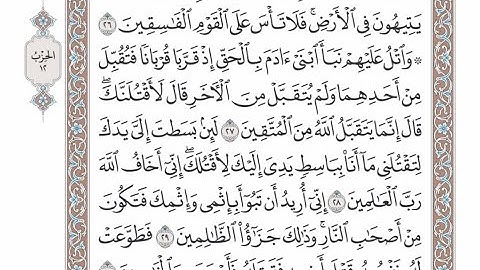 يَتِيهُونَ فِي ٱلْأَرْضِۚ فَلَا تَأْسَ عَلَى ٱلْقَوْمِ ٱلْفَٰسِقِينَ ٢٦
۞ وَٱتْلُ عَلَيْهِمْ نَبَأَ ٱبْنَيْ ءَادَمَ بِٱلْحَقِّ إِذْ قَرَّبَا قُرْبَانًا فَتُقُبِّلَ
مِنْ أَحَدِهِمَا وَلَمْ يُتَقَبَّلْ مِنَ ٱلْأٓخَرِ قَالَ لَأَقْتُلَنَّكَۖ
قَالَ إِنَّمَا يَتَقَبَّلُ ٱللَّهُ مِنَ ٱلْمُتَّقِينَ ٢٧ لَئِنۢ بَسَطتَ إِلَيَّ يَدَكَ
لِتَقْتُلَنِي مَآ أَنَا۠ بِبَاسِطٖ يَدِيَ إِلَيْكَ لِأَقْتُلَكَۖ إِنِّيٓ أَخَافُ ٱللَّهَ
رَبَّ ٱلْعَٰلَمِينَ ٢٨ إِنِّيٓ أُرِيدُ أَن تَبُوٓأَ بِإِثْمِي وَإِثْمِكَ فَتَكُونَ
مِنْ أَصْحَٰبِ ٱلنَّارِۚ وَذَٰلِكَ جَزَٰٓؤُا۟ ٱلظَّٰلِمِينَ ٢٩ فَطَوَّعَتْ
الحزب
١٢